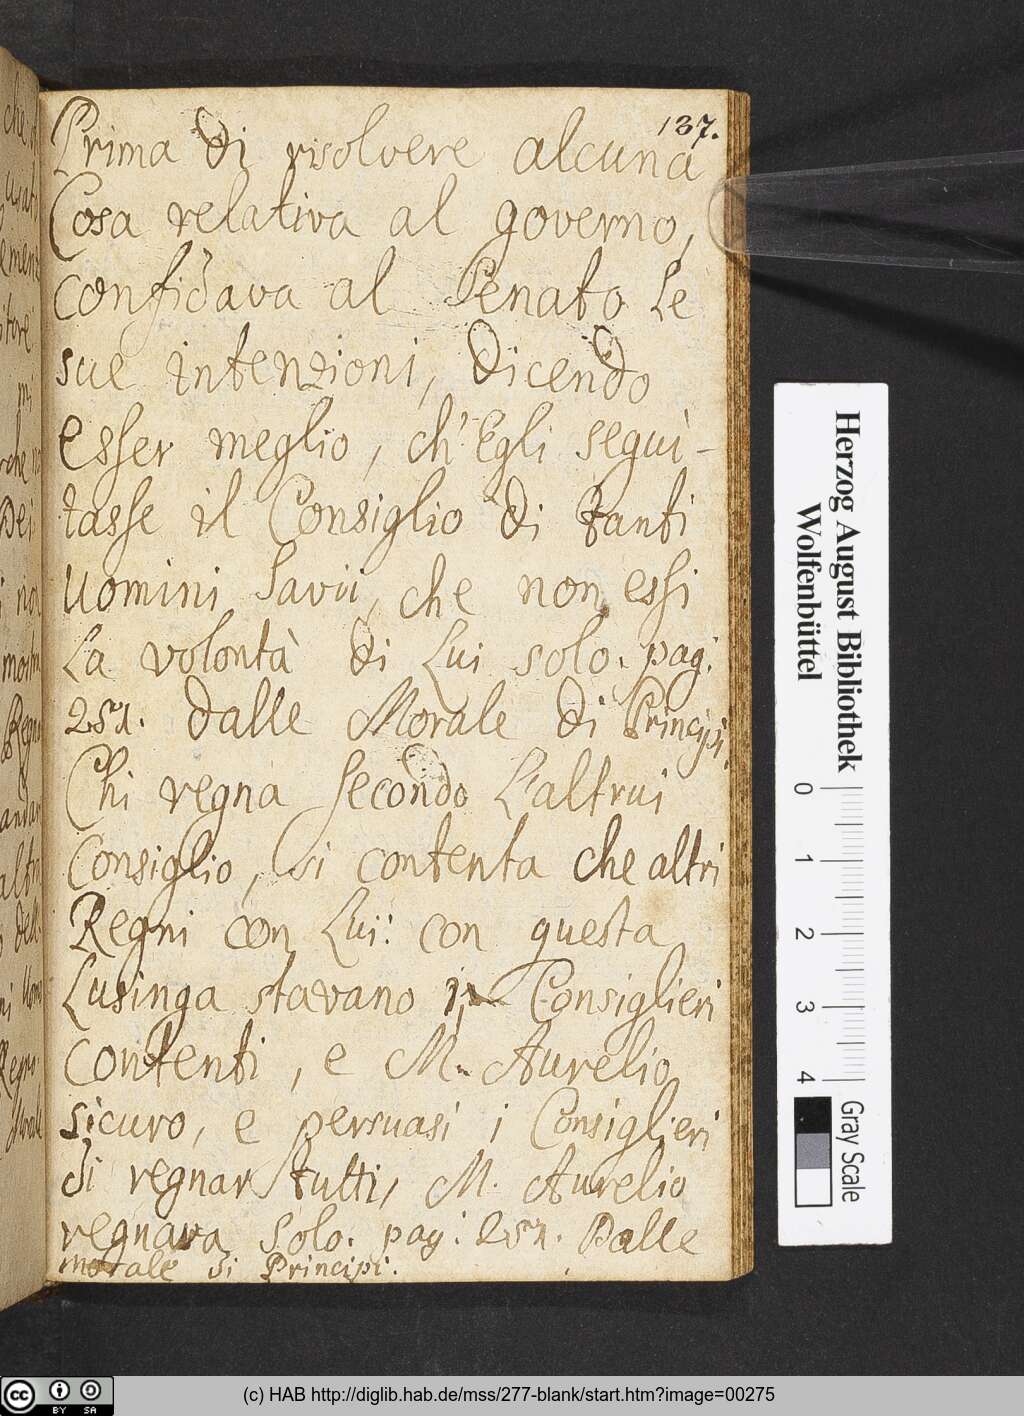 137.
Prima di risolvere alcuna
Cosa relativa al governo,
confidava al Senato Le
sue intenzioni, dicendo
esser meglio, ch'Egli segui-
tasse il Consiglio di tanti
Uomini Savii, che non essi
La volontà di Lui solo. pag.
251. dalle Morale di Principi.
Chi regna secondo L'altrui
Consiglio, si contenta che altri
Regni con Lui: con questa
Lusinga stavano i Consiglieri
contenti, e M. Aurelio
sicuro, e persuasi i Consiglieri
di regnar tutti, M. Aurelio
regnava Solo. pag. 251. Dalle
morale di Principi.
Herzog August Bibliothek
Wolfenbüttel
0 1 2 3 4
Gray Scale
cc BY SA
(c) HAB http://diglib.hab.de/mss/277-blank/start.htm?image=00275